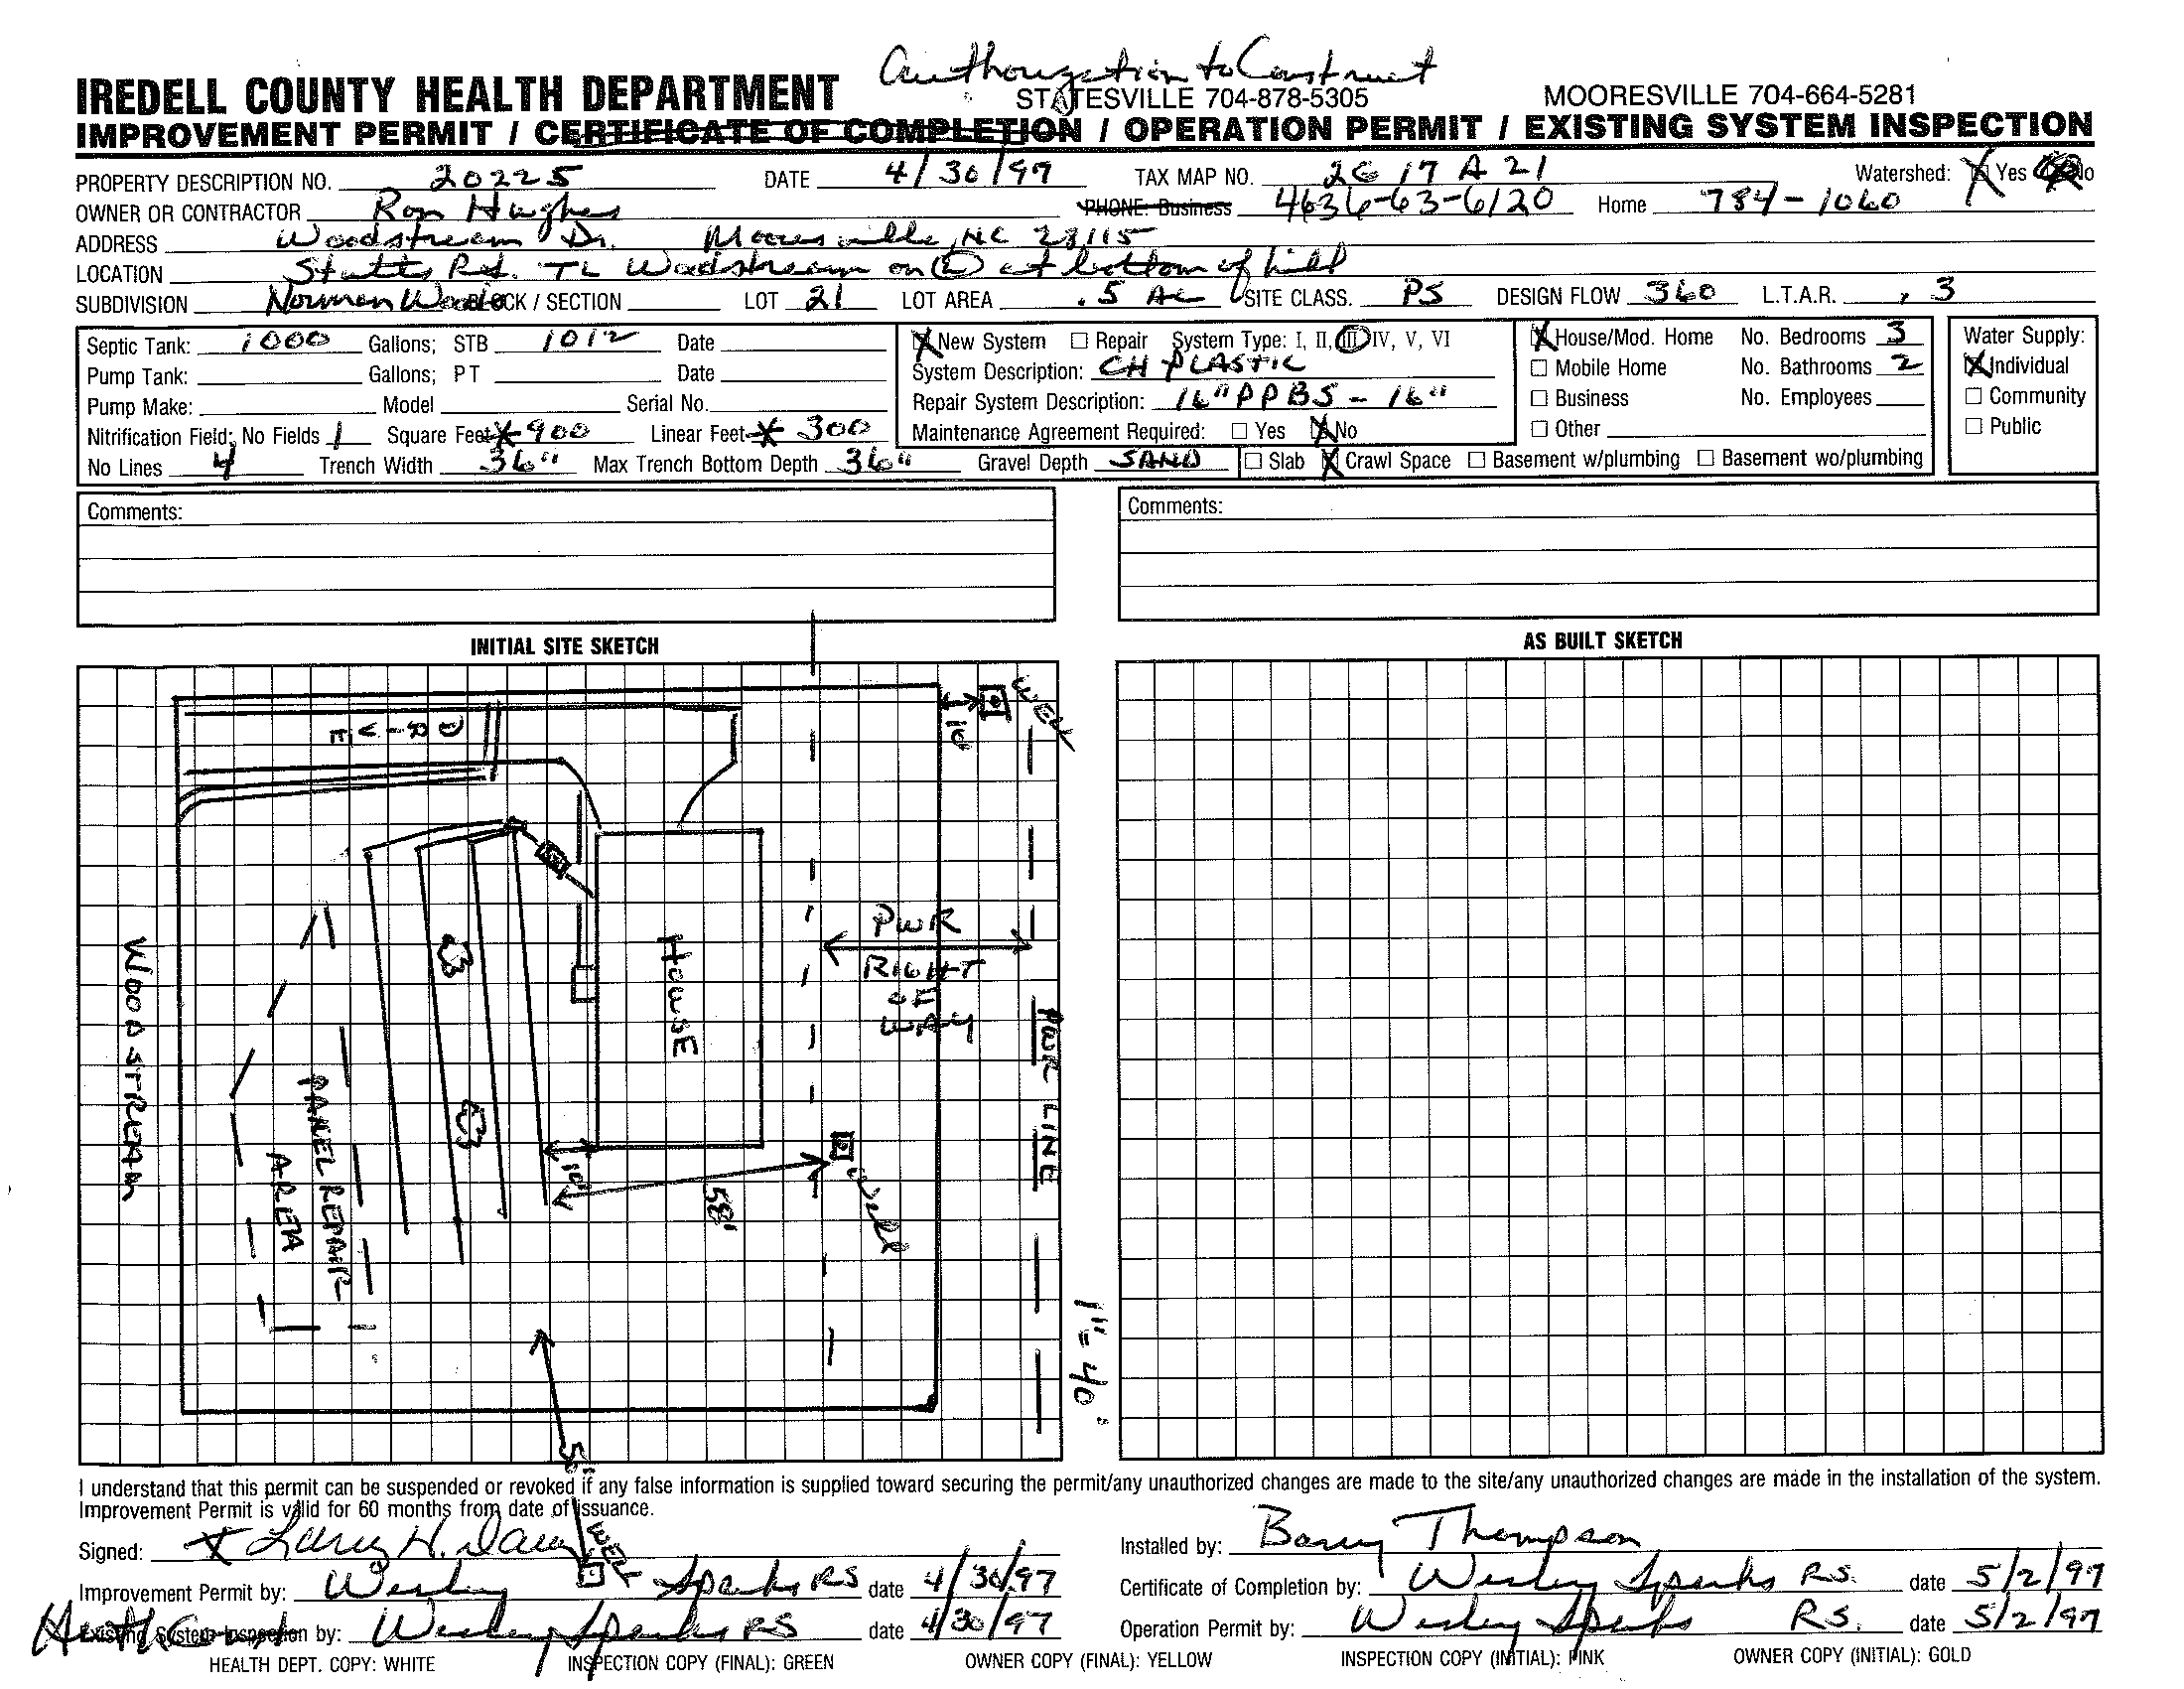 Authorization to Construct
IREDELL COUNTY HEALTH DEPARTMENT STATESVILLE 704-878-5305 MOORESVILLE 704-664-5281
IMPROVEMENT PERMIT / CERTIFICATE OF COMPLETION / OPERATION PERMIT / EXISTING SYSTEM INSPECTION
PROPERTY DESCRIPTION NO. 20225 DATE 4/30/97 TAX MAP NO. 2G 17 A 21 Watershed: X Yes No
OWNER OR CONTRACTOR Ron Hughes PHONE: Business 4636-63-6120 Home 784-1060
ADDRESS Woodstream Dr. Mooresville, NC 28115
LOCATION Stutts Rd. TL Woodstream on (L) at bottom of hill
SUBDIVISION Norman Woods BLOCK / SECTION LOT 21 LOT AREA .5 AC SITE CLASS. PS DESIGN FLOW 360 L.T.A.R. .3
Septic Tank: 1000 Gallons; STB 1012 Date
Pump Tank: Gallons; PT Date
Pump Make: Model Serial No.
Nitrification Field; No Fields 1 Square Feet X 900 Linear Feet X 300
No Lines 4 Trench Width 36" Max Trench Bottom Depth 36" Gravel Depth SAND
X New System ☐ Repair System Type: I, II, III IV, V, VI
System Description: CH PLASTIC
Repair System Description: 16" PPBS - 16"
Maintenance Agreement Required: ☐ Yes X No
X House/Mod. Home No. Bedrooms 3
☐ Mobile Home No. Bathrooms 2
☐ Business No. Employees
☐ Other
☐ Slab X Crawl Space ☐ Basement w/plumbing ☐ Basement wo/plumbing
Water Supply:
X Individual
☐ Community
☐ Public
Comments:
Comments:
INITIAL SITE SKETCH
AS BUILT SKETCH
DRIVE
10'
WELL
WOODSTREAM
PANEL REPAIR
AREA
HOUSE
PWR
RIGHT
OF
WAY
PWR LINE
10'
58'
Well
1" = 40'
WELL
I understand that this permit can be suspended or revoked if any false information is supplied toward securing the permit/any unauthorized changes are made to the site/any unauthorized changes are made in the installation of the system.
Improvement Permit is valid for 60 months from date of issuance.
Signed: X Larry H.
Improvement Permit by: Wesley Sparks RS date 4/30/97
Existing System Inspection by: Wesley Sparks RS date 4/30/97
Installed by: Barry Thompson
Certificate of Completion by: Wesley Sparks RS. date 5/2/97
Operation Permit by: Wesley Sparks RS. date 5/2/97
HEALTH DEPT. COPY: WHITE INSPECTION COPY (FINAL): GREEN OWNER COPY (FINAL): YELLOW INSPECTION COPY (INITIAL): PINK OWNER COPY (INITIAL): GOLD